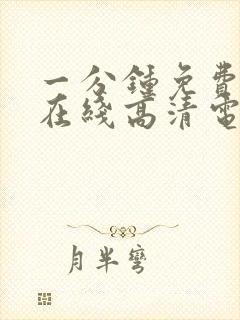 一分鍾免費
在綫高清電
月半彎